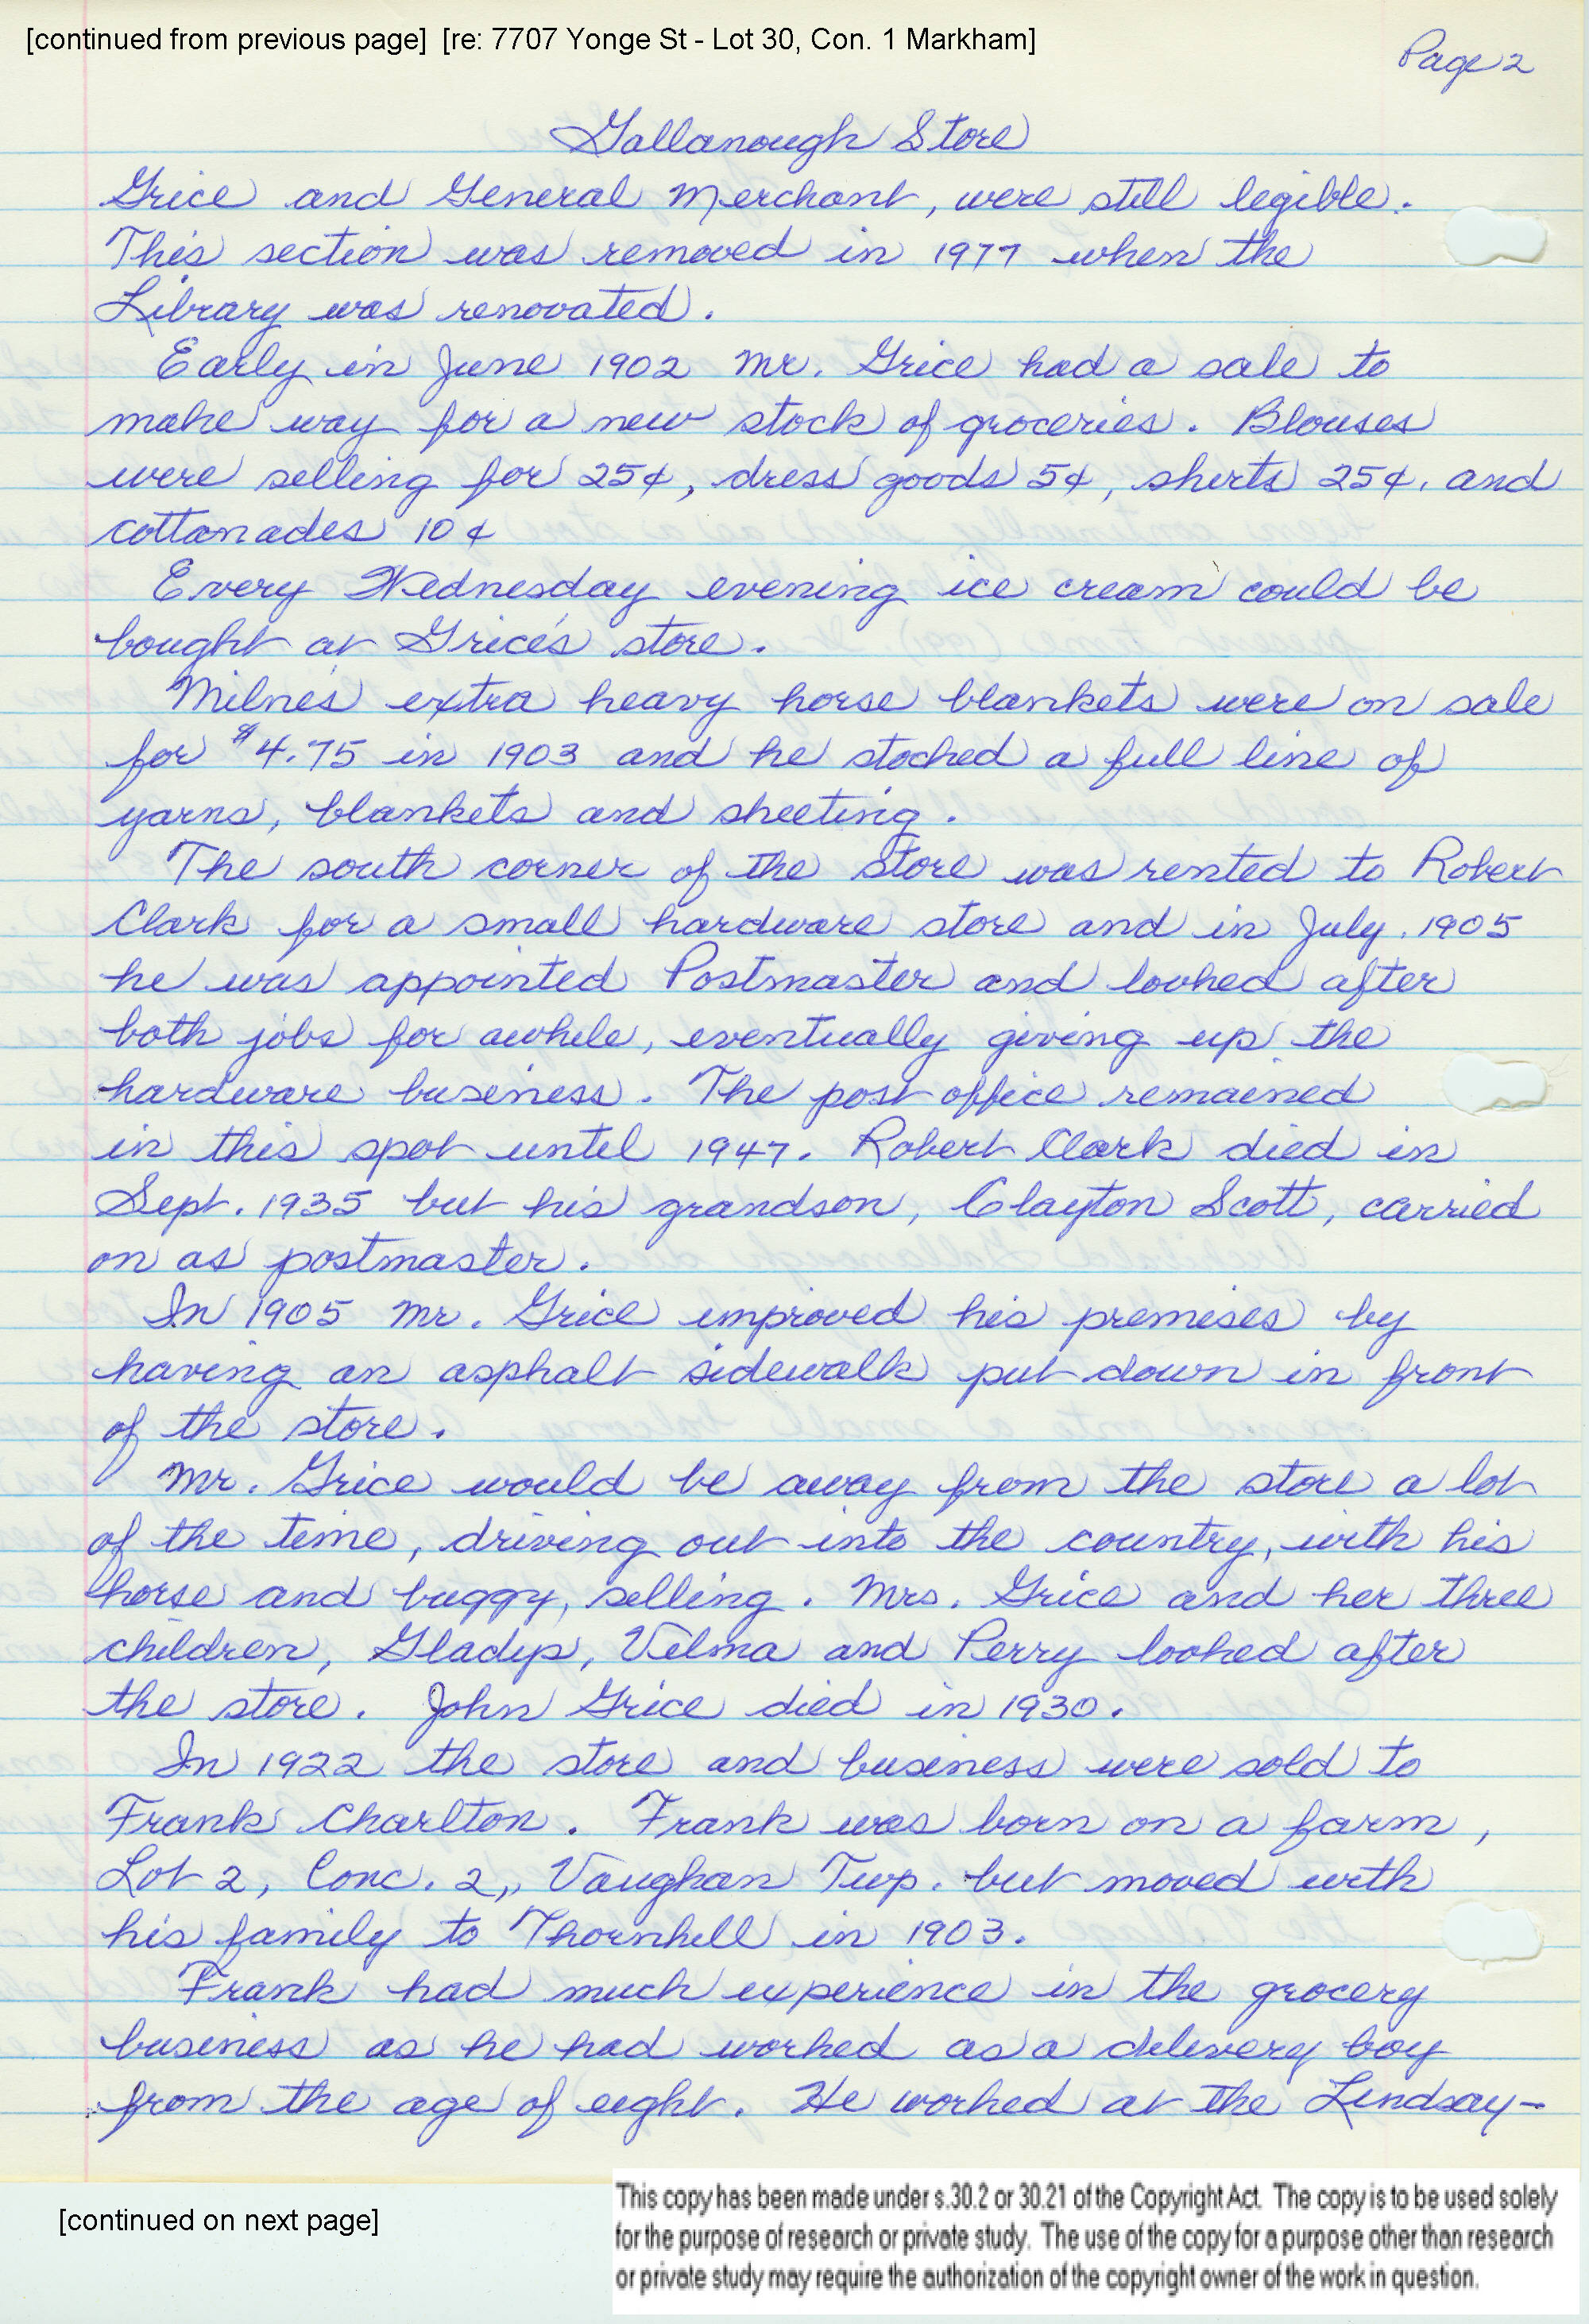 [continued from previous page] [re: 7707 Yonge St - Lot 30, Con. 1 Markham]
Page 2
Gallanough Store
Grice and General Merchant, were still legible.
This section was removed in 1977 when the
Library was renovated.
Early in June 1902 Mr. Grice had a sale to
make way for a new stock of groceries. Blouses
were selling for 25¢, dress goods 5¢, shirts 25¢, and
cottonades 10¢
Every Wednesday evening ice cream could be
bought at Grice's store.
Milne's extra heavy horse blankets were on sale
for $4.75 in 1903 and he stocked a full line of
yarns, blankets and sheeting.
The south corner of the store was rented to Robert
Clark for a small hardware store and in July, 1905
he was appointed Postmaster and looked after
both jobs for awhile, eventually giving up the
hardware business. The post office remained
in this spot until 1947. Robert Clark died in
Sept. 1935 but his grandson, Clayton Scott, carried
on as postmaster.
In 1905 Mr. Grice improved his premises by
having an asphalt sidewalk put down in front
of the store.
Mr. Grice would be away from the store a lot
of the time, driving out into the country, with his
horse and buggy, selling. Mrs. Grice and her three
children, Gladys, Velma and Perry looked after
the store. John Grice died in 1930.
In 1922 the store and business were sold to
Frank Charlton. Frank was born on a farm,
Lot 2, Conc. 2,, Vaughan Twp. but moved with
his family to Thornhill in 1903.
Frank had much experience in the grocery
business as he had worked as a delivery boy
from the age of eight. He worked at the Lindsay-
[continued on next page]
This copy has been made under s.30.2 or 30.21 of the Copyright Act. The copy is to be used solely
for the purpose of research or private study. The use of the copy for a purpose other than research
or private study may require the authorization of the copyright owner of the work in question.